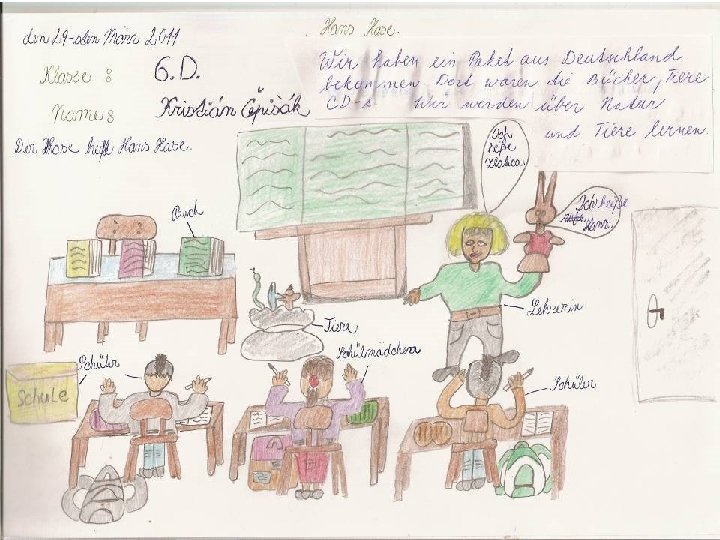 den 29-sten März 2011
Hans Hase.
Klasse : 6.D.
Name : Kristián Čipšák
Der Hase heißt Hans Hase.
Wir haben ein Paket aus Deutschland
bekommen. Dort waren die Bücher, Tiere
CD-s. Wir werden über Natur
und Tiere lernen.
Ich
heiße
Ich heiße
Hans
Buch
Lehrerin
Tiere
Schüler
Schulmädchen
Schüler
Schule